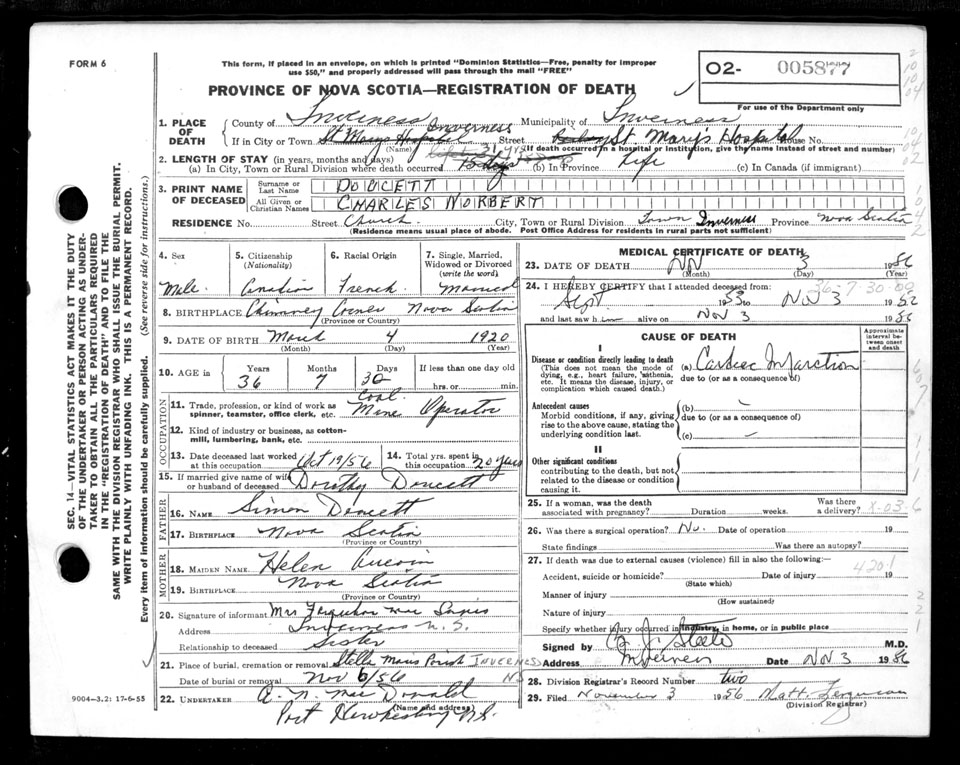 FORM 6
This form, if placed in an envelope, on which is printed "Dominion Statistics—Free, penalty for improper
use $50," and properly addressed will pass through the mail "FREE"
02- 005877
For use of the Department only
PROVINCE OF NOVA SCOTIA—REGISTRATION OF DEATH
1. PLACE OF DEATH
County of Inverness Municipality of Inverness
If in City or Town St Marys Hospital Inverness Street St. Mary's Hospital House No.
(Name) (If death occurred in a hospital or institution, give the name instead of street and number)
2. LENGTH OF STAY (in years, months and days)
(a) In City, Town or Rural Division where death occurred 15 days (b) In Province Life (c) In Canada (if immigrant)
3. PRINT NAME OF DECEASED
Surname or Last Name DOUCETT
All Given or Christian Names CHARLES NORBERT
RESIDENCE No. Street Church City, Town or Rural Division Town Inverness Province Nova Scotia
(Residence means usual place of abode. Post Office Address for residents in rural parts not sufficient)
4. Sex Male
5. Citizenship (Nationality) Canadian
6. Racial Origin French
7. Single, Married, Widowed or Divorced (write the word) Married
8. BIRTHPLACE Chimney Corner Nova Scotia
(Province or Country)
9. DATE OF BIRTH March 4 1920
(Month) (Day) (Year)
10. AGE in Years 36 Months 7 Days 30 If less than one day hrs. or min.
OCCUPATION
11. Trade, profession, or kind of work as spinner, teamster, office clerk, etc. Coal Mine Operator
12. Kind of industry or business, as cotton-mill, lumbering, bank, etc.
13. Date deceased last worked at this occupation Oct 19/56
14. Total yrs. spent in this occupation 20 years
15. If married give name of wife or husband of deceased Dorothy Doucett
FATHER
16. NAME Simon Doucett
17. BIRTHPLACE Nova Scotia
(Province or Country)
MOTHER
18. MAIDEN NAME Helen Aucoin
19. BIRTHPLACE Nova Scotia
(Province or Country)
20. Signature of informant Mrs
Address Inverness N.S.
Relationship to deceased Sister
21. Place of burial, cremation or removal Stella Maris Parish INVERNESS
Date of burial or removal Nov 6/56 NS
22. UNDERTAKER A. N. MacDonald
(Name and address)
Port Hawkesbury N.S.
MEDICAL CERTIFICATE OF DEATH
23. DATE OF DEATH Nov 3 1956
(Month) (Day) (Year)
24. I HEREBY CERTIFY that I attended deceased from:
Sept 1953 to Nov 3 19
and last saw him alive on Nov 3 19
CAUSE OF DEATH
Approximate interval between onset and death
I
Disease or condition directly leading to death
(This does not mean the mode of dying, e.g., heart failure, asthenia, etc. It means the disease, injury, or complication which caused death.)
(a) Cardiac Infarction
due to (or as a consequence of)
Antecedent causes
Morbid conditions, if any, giving rise to the above cause, stating the underlying condition last.
(b)
due to (or as a consequence of)
(c)
II
Other significant conditions
contributing to the death, but not related to the disease or condition causing it.
25. If a woman, was the death associated with pregnancy? Duration weeks. Was there a delivery?
26. Was there a surgical operation? No. Date of operation 19
State findings Was there an autopsy?
27. If death was due to external causes (violence) fill in also the following:
4201
Accident, suicide or homicide? Date of injury 19
(State which)
Manner of injury
(How sustained)
Nature of injury
Specify whether injury occurred in industry, in home, or in public place
Signed by M.D.
Address Inverness Date Nov 3 1956
28. Division Registrar's Record Number two
29. Filed November 3 1956 Matt. Ferguson
(Division Registrar)
SEC. 14—VITAL STATISTICS ACT MAKES IT THE DUTY
OF THE UNDERTAKER OR PERSON ACTING AS UNDER-
TAKER TO OBTAIN ALL THE PARTICULARS REQUIRED
IN THE "REGISTRATION OF DEATH" AND TO FILE THE
SAME WITH THE DIVISION REGISTRAR WHO SHALL ISSUE THE BURIAL PERMIT.
WRITE PLAINLY WITH UNFADING INK. THIS IS A PERMANENT RECORD.
Every item of information should be carefully supplied. (See reverse side for instructions.)
9004-3.2: 17-6-55